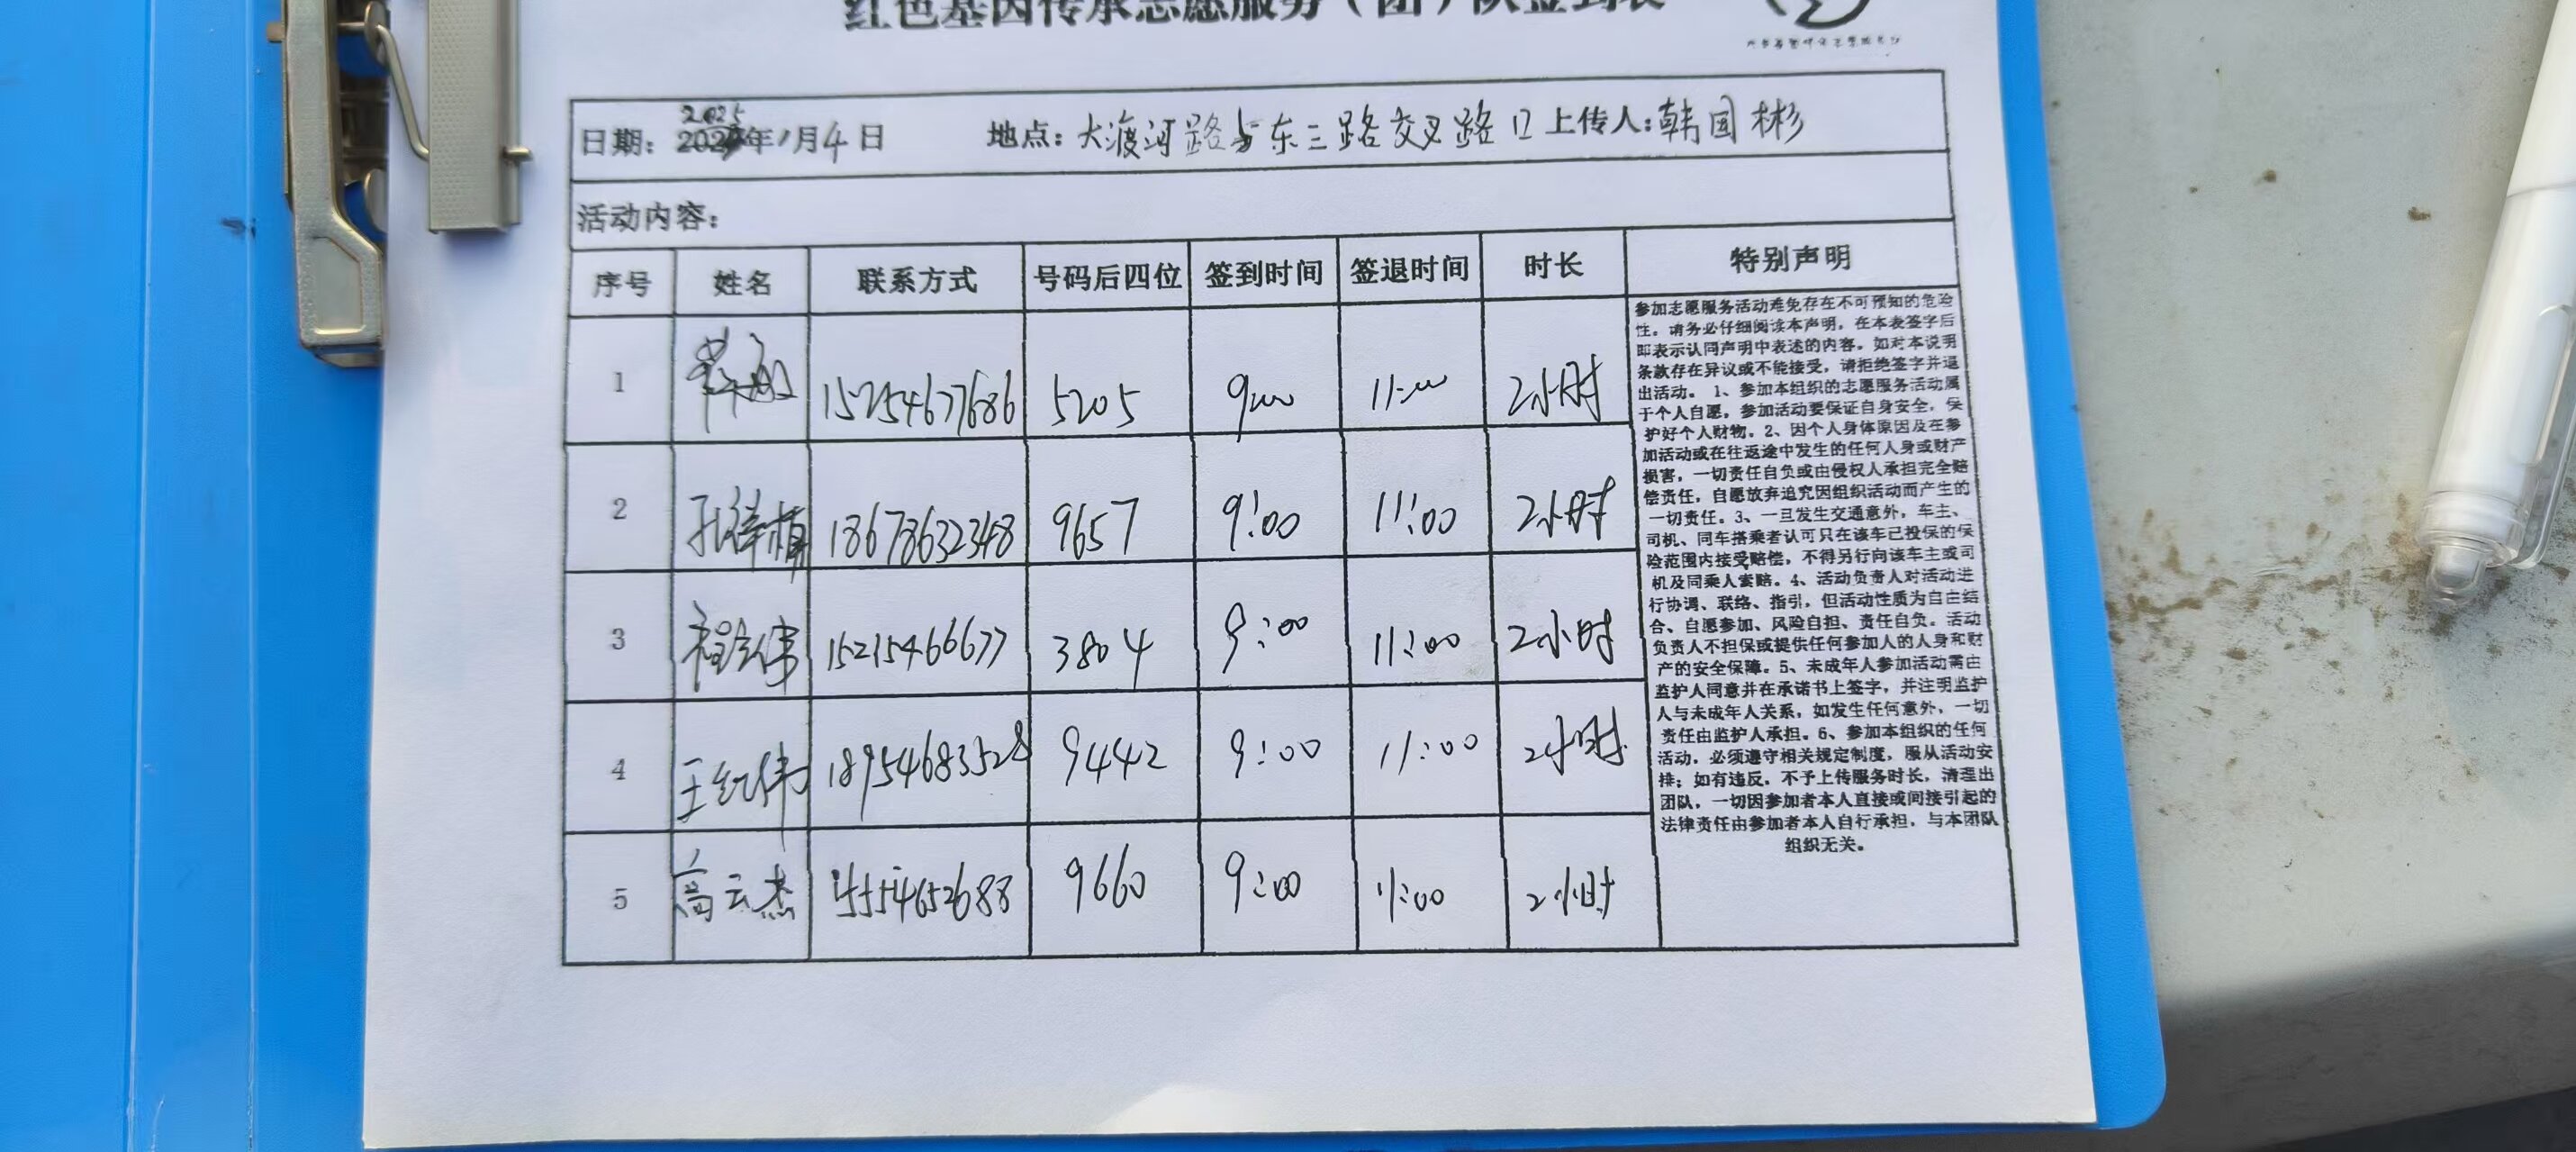 红色基因传承志愿服务（团）队签到表
2025
日期：2025年1月4日 地点：大渡河路与东三路交叉路口 上传人：韩国彬
活动内容：
序号 姓名 联系方式 号码后四位 签到时间 签退时间 时长 特别声明
1 15254677686 5205 9:00 11:00 2小时
2 孔祥梅 18678632348 9657 9:00 11:00 2小时
3 程伟 15215466677 3804 9:00 11:00 2小时
4 王红伟 18954683528 9442 9:00 11:00 2小时
5 高云杰 15554652688 9660 9:00 11:00 2小时
参加志愿服务活动难免存在不可预知的危险
性。请务必仔细阅读本声明，在本表签字后
即表示认同声明中表述的内容。如对本说明
条款存在异议或不能接受，请拒绝签字并退
出活动。 1、参加本组织的志愿服务活动属
于个人自愿，参加活动要保证自身安全，保
护好个人财物。2、因个人身体原因及在参
加活动或在往返途中发生的任何人身或财产
损害，一切责任自负或由侵权人承担完全赔
偿责任，自愿放弃追究因组织活动而产生的
一切责任。3、一旦发生交通意外，车主、
司机、同车搭乘者认可只在该车已投保的保
险范围内接受赔偿，不得另行向该车主或司
机及同乘人索赔。4、活动负责人对活动进
行协调、联络、指引，但活动性质为自由结
合、自愿参加、风险自担、责任自负。活动
负责人不担保或提供任何参加人的人身和财
产的安全保障。5、未成年人参加活动需由
监护人同意并在承诺书上签字，并注明监护
人与未成年人关系，如发生任何意外，一切
责任由监护人承担。6、参加本组织的任何
活动，必须遵守相关规定制度，服从活动安
排；如有违反，不予上传服务时长，清理出
团队，一切因参加者本人直接或间接引起的
法律责任由参加者本人自行承担，与本团队
组织无关。